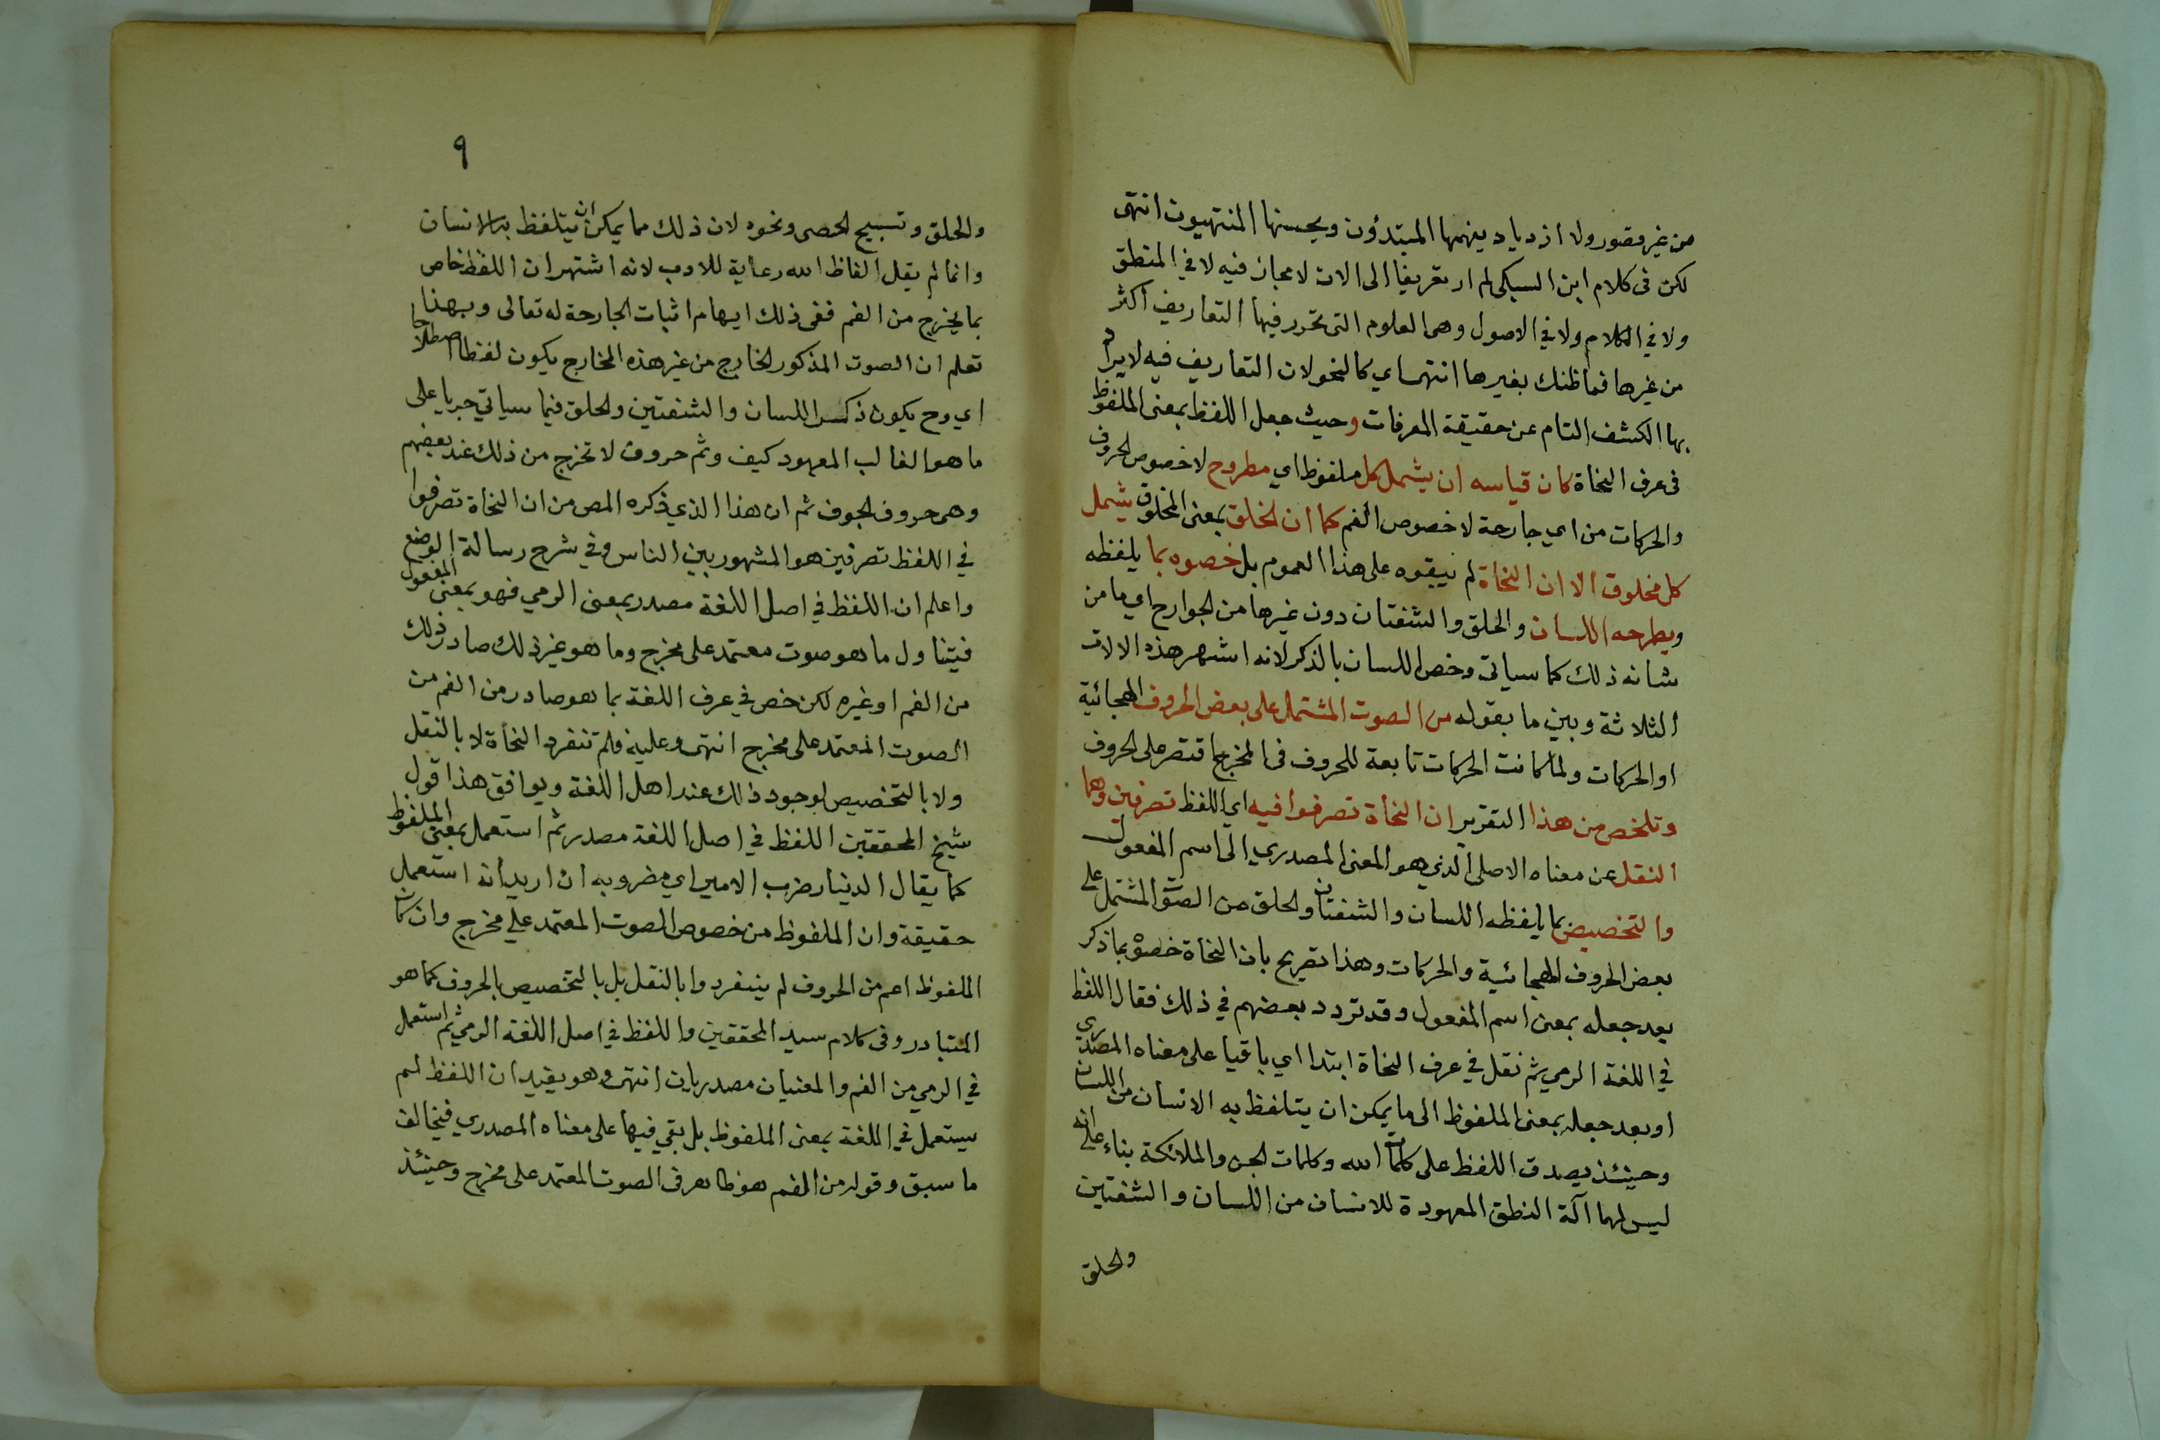 من غير قصور ولا ازدياد يفهمها المبتدؤن ويحسنها المنتهيون انتهى
لكن في كلام ابن السبكي لم ار تعريفا الى الان لا مجاز فيه لا في المنطق
ولا في الكلام ولا في الاصول وهي العلوم التي تحرر فيها التعاريف اكثر
من غيرها فما ظنك بغيرها انتهى اي كالنحو لان التعاريف فيه لا يراد
بها الكشف التام عن حقيقة المعرفات وحيث جعل اللفظ بمعنى الملفوظ
في عرف النحاة كان قياسه ان يشمل كل ملفوظ اي مطروح لا خصوص الحروف
والحركات من اي جارحة لا خصوص الفم كما ان الخلق بمعنى المخلوق يشمل
كل مخلوق الا ان النحاة لم يبقوه على هذا العموم بل خصوه بما يلفظه
ويطرحه اللسان والحلق والشفتان دون غيرها من الجوارح اي ما من
شانه ذلك كما سياتي وخص اللسان بالذكر لانه اشهر هذه الالات
الثلاثة وبين ما بقوله من الصوت المشتمل على بعض الحروف الهجائية
او الحركات ولما كانت الحركات تابعة للحروف في المخرج اقتصر على الحروف
وتلخص من هذا التقرير ان النحاة تصرفوا فيه اي اللفظ تصرفين وهما
النقل عن معناه الاصلي الذي هو المعنى المصدري الى اسم المفعول
والتخصيص بما يلفظه اللسان والشفتان والحلق من الصوت المشتمل على
بعض الحروف الهجائية والحركات وهذا تصريح بان النحاة خصوه بما ذكر
بعد جعله بمعنى اسم المفعول وقد تردد بعضهم في ذلك فقال اللفظ
في اللغة الرمي ثم نقل في عرف النحاة ابتدا اي باقيا على معناه المصدري
او بعد جعله بمعنى الملفوظ الى ما يمكن ان يتلفظ به الانسان من اللسان
وحينئذ يصدق اللفظ على كلمات الله وكلمات الجن والملائكة بناء على انه
ليس لهما آلة النطق المعهودة للانسان من اللسان والشفتين
والحلق
٩
والحلق وتسبيح الحصى ونحوه لان ذلك مما يمكن ان يتلفظ به الانسان
وانما لم يقل الفاظ الله رعاية للادب لانه اشتهر ان اللفظ خاص
بما يخرج من الفم ففي ذلك ايهام اثبات الجارحة له تعالى وبهذا
تعلم ان الصوت المذكور الخارج من غير هذه المخارج يكون لفظا اصطلاحا
اي وح يكون ذكر اللسان والشفتين والحلق فيما سياتي جريا على
ما هو الغالب المعهود كيف وثم حروف لا تخرج من ذلك عند بعضهم
وهي حروف الجوف ثم ان هذا الذي ذكره المص من ان النحاة تصرفوا
في اللفظ تصرفين هو المشهور بين الناس وفي شرح رسالة الوضع
واعلم ان اللفظ في اصل اللغة مصدر بمعنى الرمي فهو بمعنى المفعول
فيتناول ما هو صوت معتمد على مخرج وما هو غير ذلك صادر ذلك
من الفم او غيره لكن خص في عرف اللغة بما هو صادر من الفم من
الصوت المعتمد على مخرج انتهى وعليه فلم تنفرد النحاة لا بالنقل
ولا بالتخصيص لوجود ذلك عند اهل اللغة ويوافق هذا قول
شيخ المحققين اللفظ في اصل اللغة مصدر ثم استعمل بمعنى الملفوظ
كما يقال الدنيار ضرب الامير اي مضروبه ان اريد انه استعمل
حقيقة وان الملفوظ من خصوص الصوت المعتمد على مخرج وان كان
الملفوظ اعم من الحروف لم ينفردوا بالنقل بل بالتخصيص بالحروف كما هو
المتبادر وفي كلام سيد المحققين واللفظ في اصل اللغة الرمي ثم استعمل
في الرمي من الفم والمعنيان مصدريان انتهى وهو يفيد ان اللفظ لم
يستعمل في اللغة بمعنى الملفوظ بل بقي فيها على معناه المصدري فيخالف
ما سبق وقوله من الفم هو ظاهر في الصوت المعتمد على مخرج وحينئذ